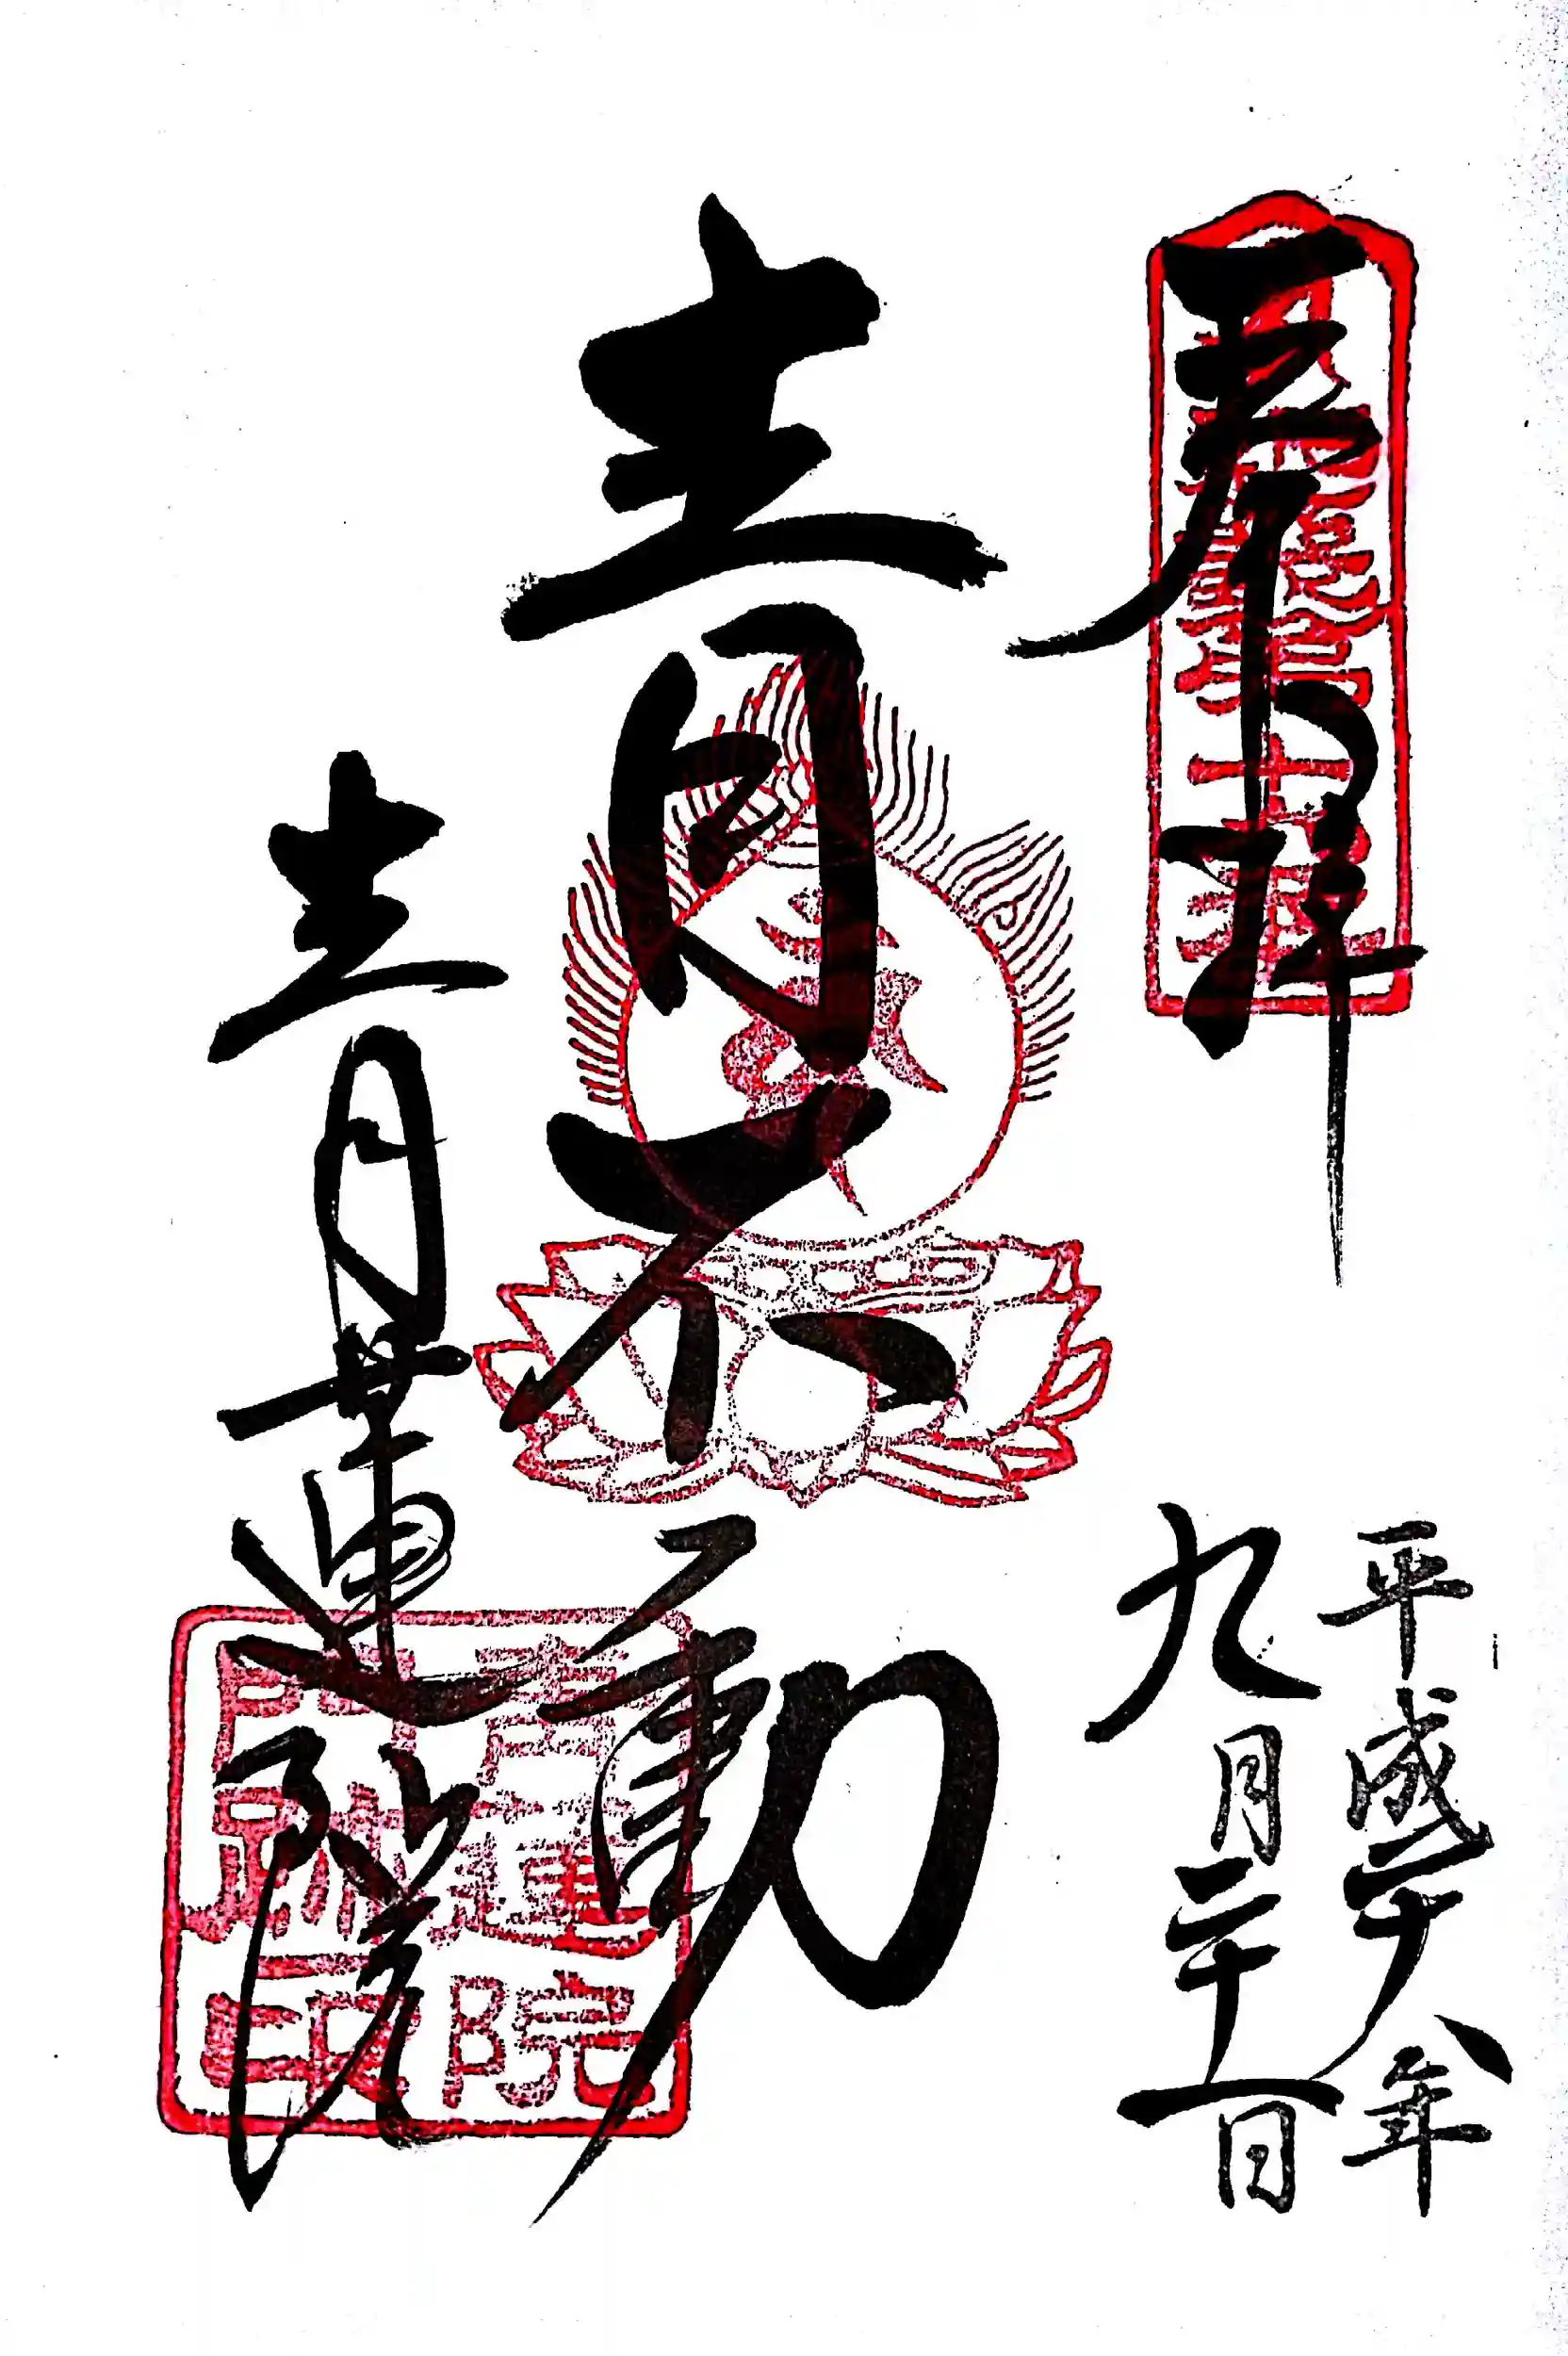 奉拝
平成十八年
九月二十一日
青不動
青蓮院
青蓮院
門跡印